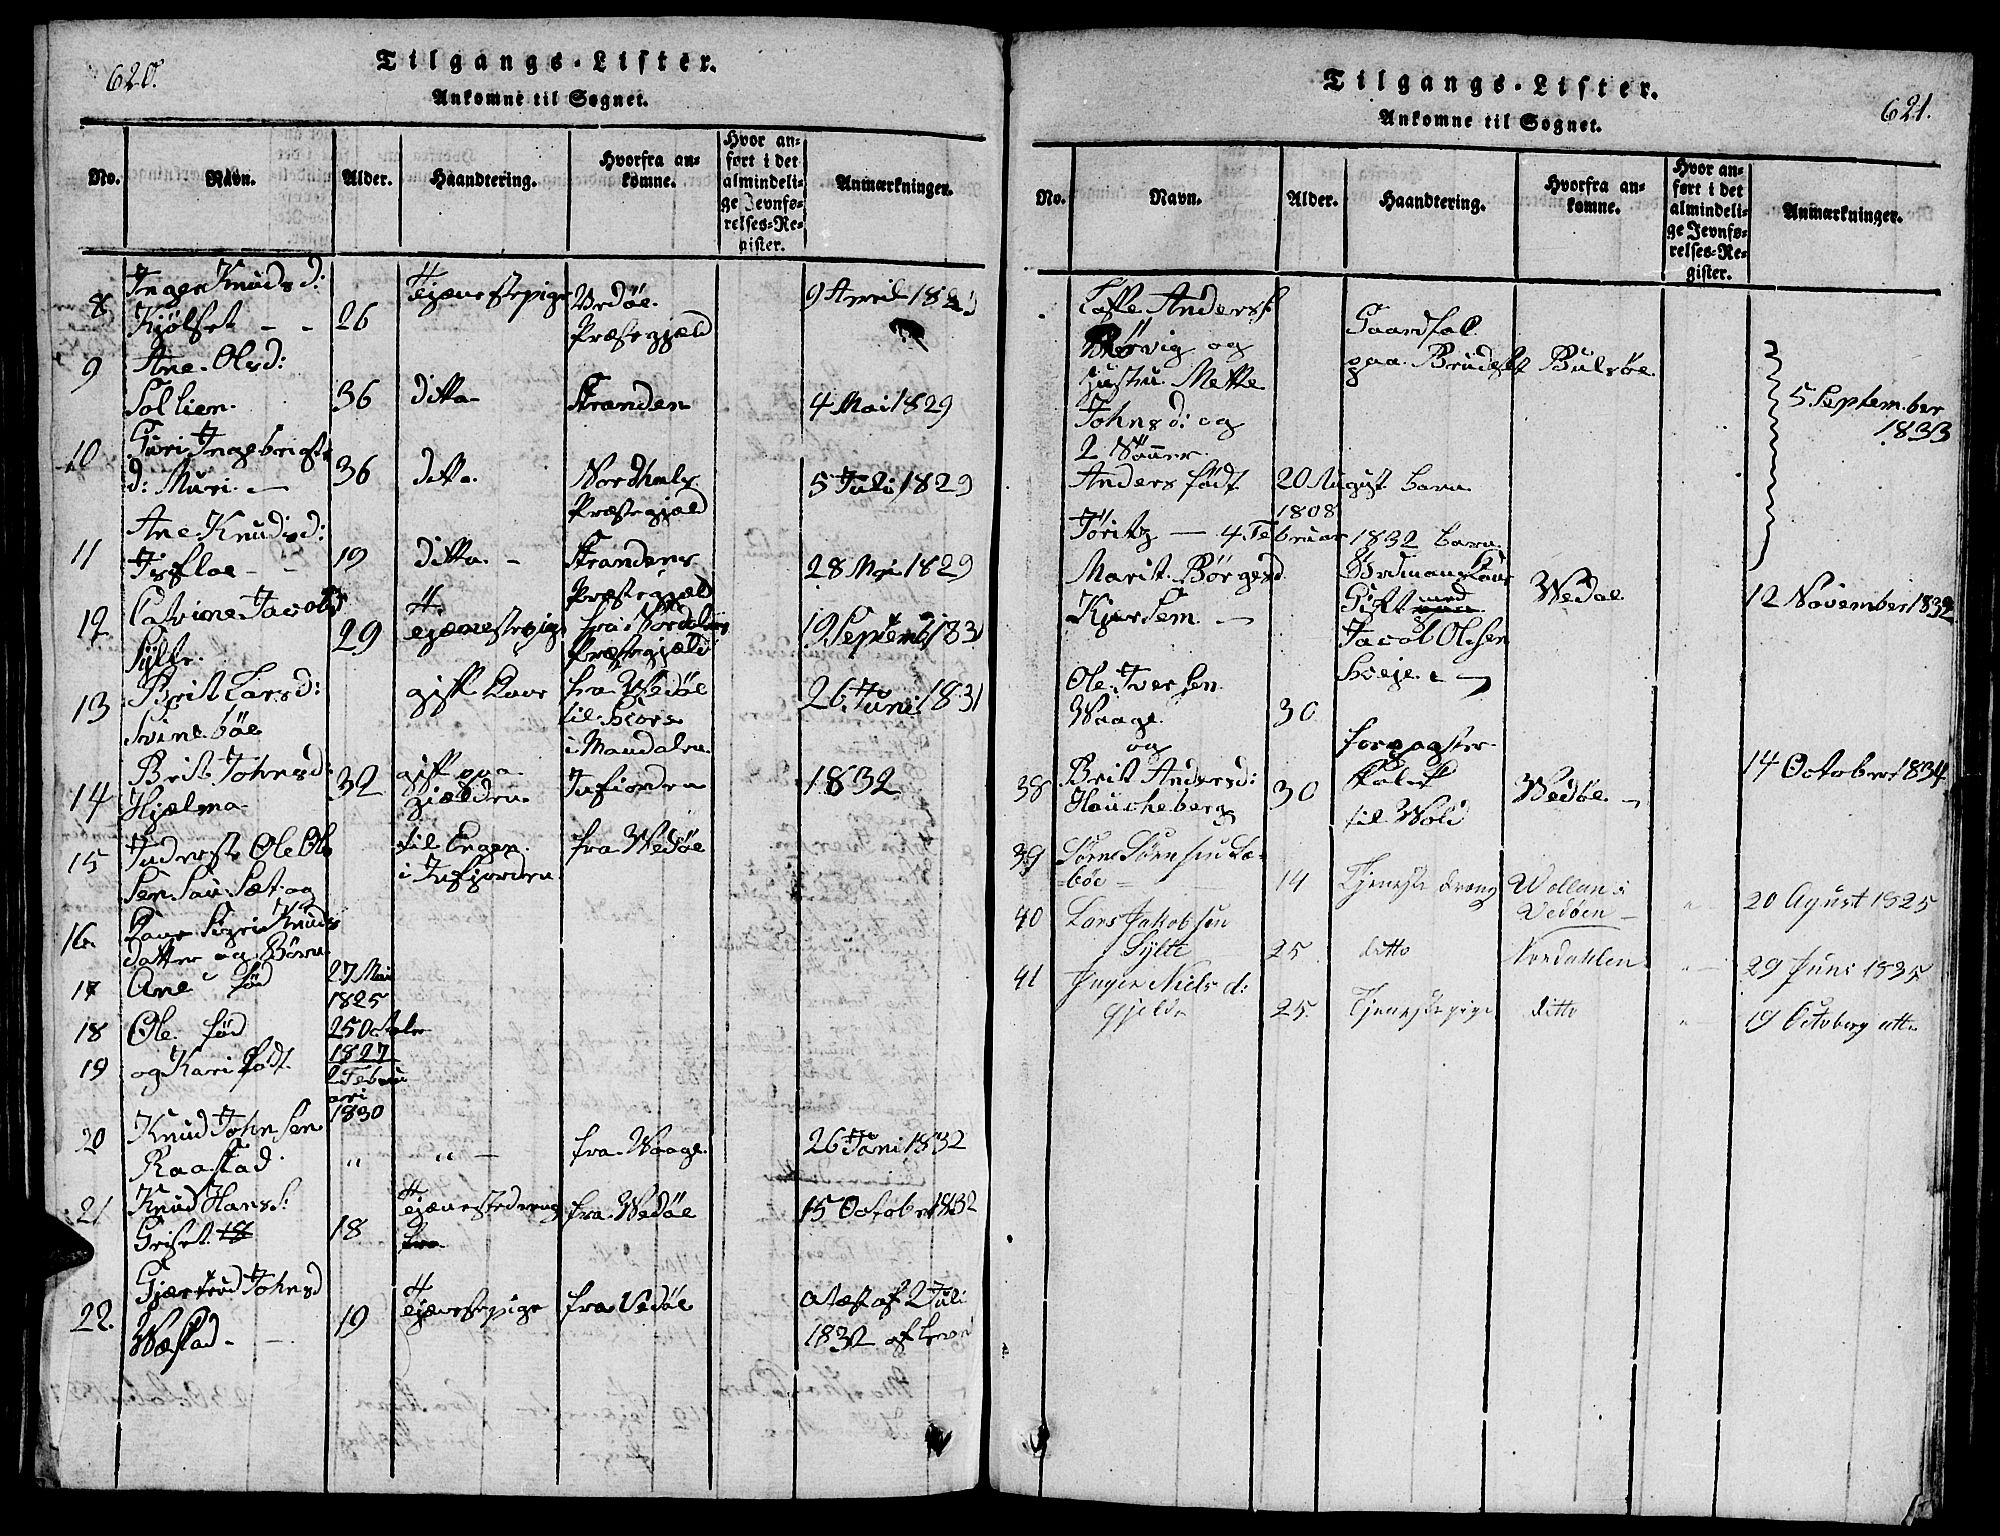 620.
Tilgangs-Lister.
Ankomne til Sognet.
No. Navn. Alder. Haandtering. Hvorfra ankomne. Hvor anført i det almindelige Jevnførelses-Register. Anmærkninger.
Inger Knudsd:
8 Kjölset - - 26 Tjænestepige Vedöe Præstegjæld 9 April 18
9 Ane Olsd:
Sollien 36 ditto Stranden 4 Mai 1829
10 Guri Ingebrigts
d: Muri - 36 ditto Nordhals Præstegjæld 5 Juli 1829
Ane Knudsd:
11 Jisfloe - - 19 ditto - Strandens Præstegjæld 28 Mai 1829
12 Catrine Jacobs
Sylte 29 Tjænestepige fra Nordalens Præstegjæld 19 Septemb 1831
13 Brit Larsd:
Svineböe gift Kone fra Wedöe til Hors i Maudalen 26 Juni 1831
Brit Johnsd:
14 Hjælma 32 gift paa Gjælden Isfiorden 1832
15 Inderste Ole Ols
sen Sausæt og til Engen i Isfjorden fra Wedöe
16 Kone Sigri Knuds
datter og Börn
17 Ane fød 27 Mai 1825
18 Ole fød 25 Octobr 1827
19 og Kari født 2 Februari 1830
20 Knud Johnsen
Raastad " " - fra Waage 26 Juni 1832
21 Knud Hans S:
Griset 18 Tjænestedreng fra Wedöe 15 October 1832
Gjærtrud Johnsd
22. Wæstad - - 19 Tjænestepige fra Vedöe atest af 2 Juli 1832 af
621.
Tilgangs-Lister.
Ankomne til Sognet.
No. Navn. Alder. Haandtering. Hvorfra ankomne. Hvor anført i det almindelige Jevnførelses-Register. Anmærkninger.
Anders
og Gaardfol
Hustru Mette paa Brudeset Bulsöe
Johnsd: og 5 September 1833
2 Sönner
Anders födt 20 August 1808 barn
- 4 Februar 1832 barn
Marit Börgesd
Kjersem - Gift med Jacob Olsen Wedöe 12 November 1832
Ole Iversen
Waage 30
og forpagter
38 Brit Andersd:
Haucheberg 30 til Wold Wedöe - 14 October 1834
39 Sörne Sörnsen Læ=
=böe - 14 Tjeneste dreng Wollan i Vedöen - " 20 Agust 1825
40 Lars Jakobsen
Sylte 25 ditto Nordahlen " 29 Juni 1835
41 Inger Niels d:
Gjelde 25. Tjenestepige ditto " 19 Octoberg